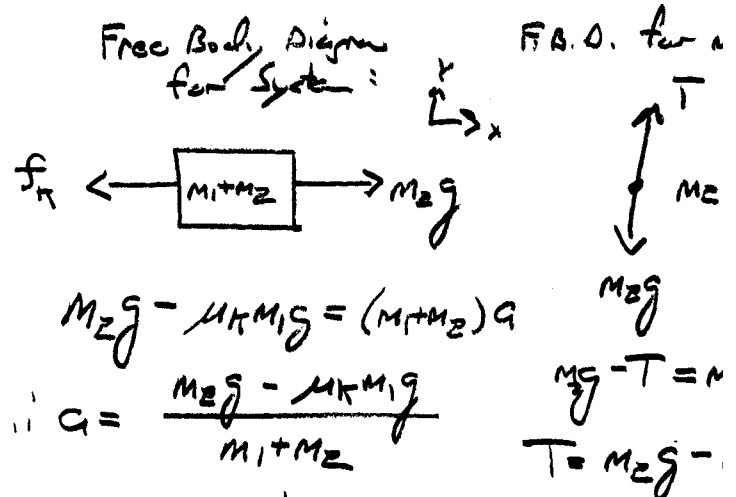 Free Body Diagram
for System:
Y
x
f_k
m₁+m₂
m₂g
m₂g - μ_k m₁g = (m₁+m₂) a
∴ a = (m₂g - μ_k m₁g) / (m₁+m₂)
F.B.D. for m
T
m₂
m₂g
m₂g - T = m
T = m₂g -